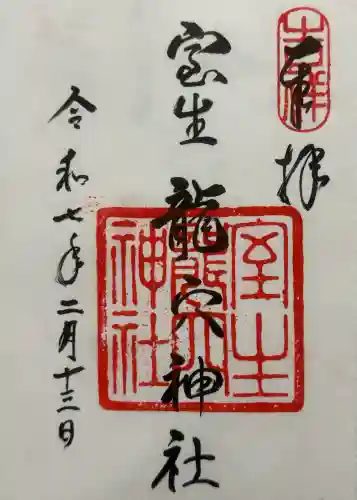 奉拝
室生龍穴神社
令和七年二月十三日
室生龍穴神社